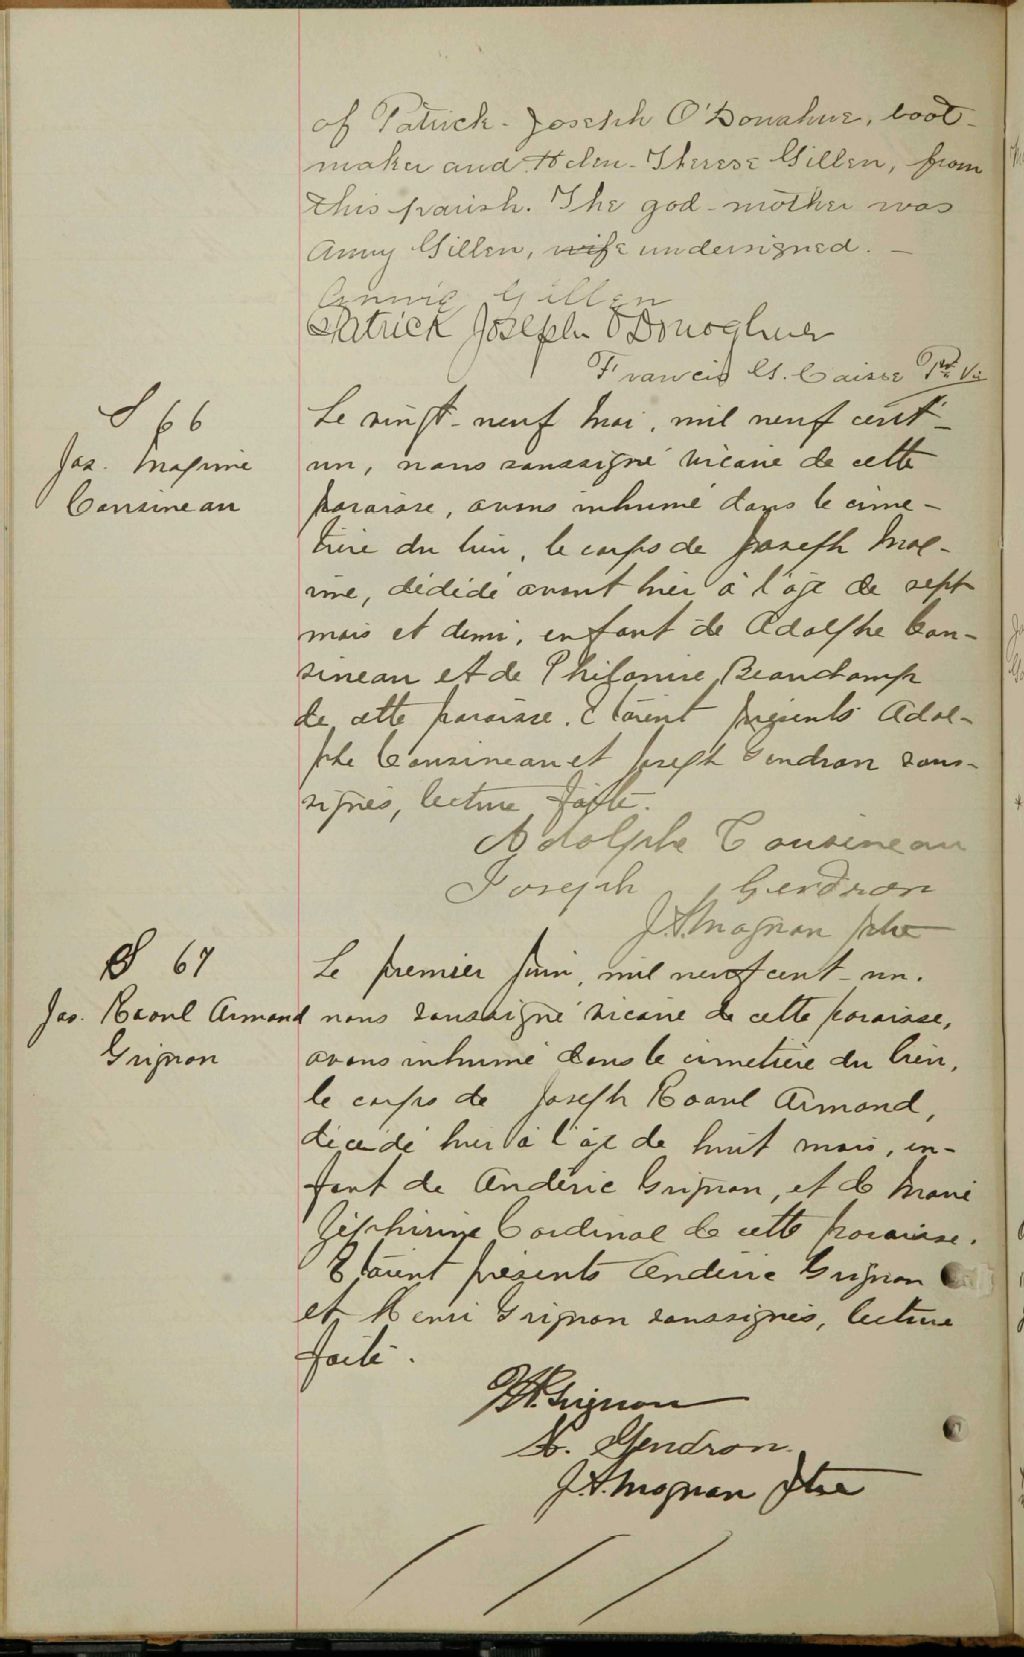 of Patrick-Joseph O'Donahue, boot-
maker and Helen-Therese Gillen, from
this parish. The god-mother was
Anny Gillen, wife undersigned. —
Annie Gillen
Patrick Joseph O'Donoghue
Francis G. Caisse Ptre Vic
S 66
Jos. Maxime
Cousineau
Le vingt-neuf Mai, mil neuf cent-
un, nous soussigné vicaire de cette
paroisse, avons inhumé dans le cime-
tière du lieu, le corps de Joseph Max-
ime, dédidé avant hier à l'âge de sept
mois et demi, enfant de Adolphe Cou-
sineau et de Philomise Beauchamp
de cette paroisse. Etaient présents Adol-
phe Cousineau et Joseph Gendron sous-
signés, lecture faite.
Adolphe Cousineau
Joseph Gendron
J.A. Magnan ptre
S 67
Jos. Raoul Armand
Grignon
Le premier Juin, mil neuf cent-un.
nous soussigné vicaire de cette paroisse,
avons inhumé dans le cimetière du lieu,
le corps de Joseph Raoul Armand,
décédé hier à l'âge de huit mois, en-
fant de Andéric Grignon, et de Marie
Zéphirine Cardinal de cette paroisse.
Etaient présents Andéric Grignon
et Henri Grignon soussignés, lecture
faite.
Grignon
Gendron
J.A. Magnan Ptre